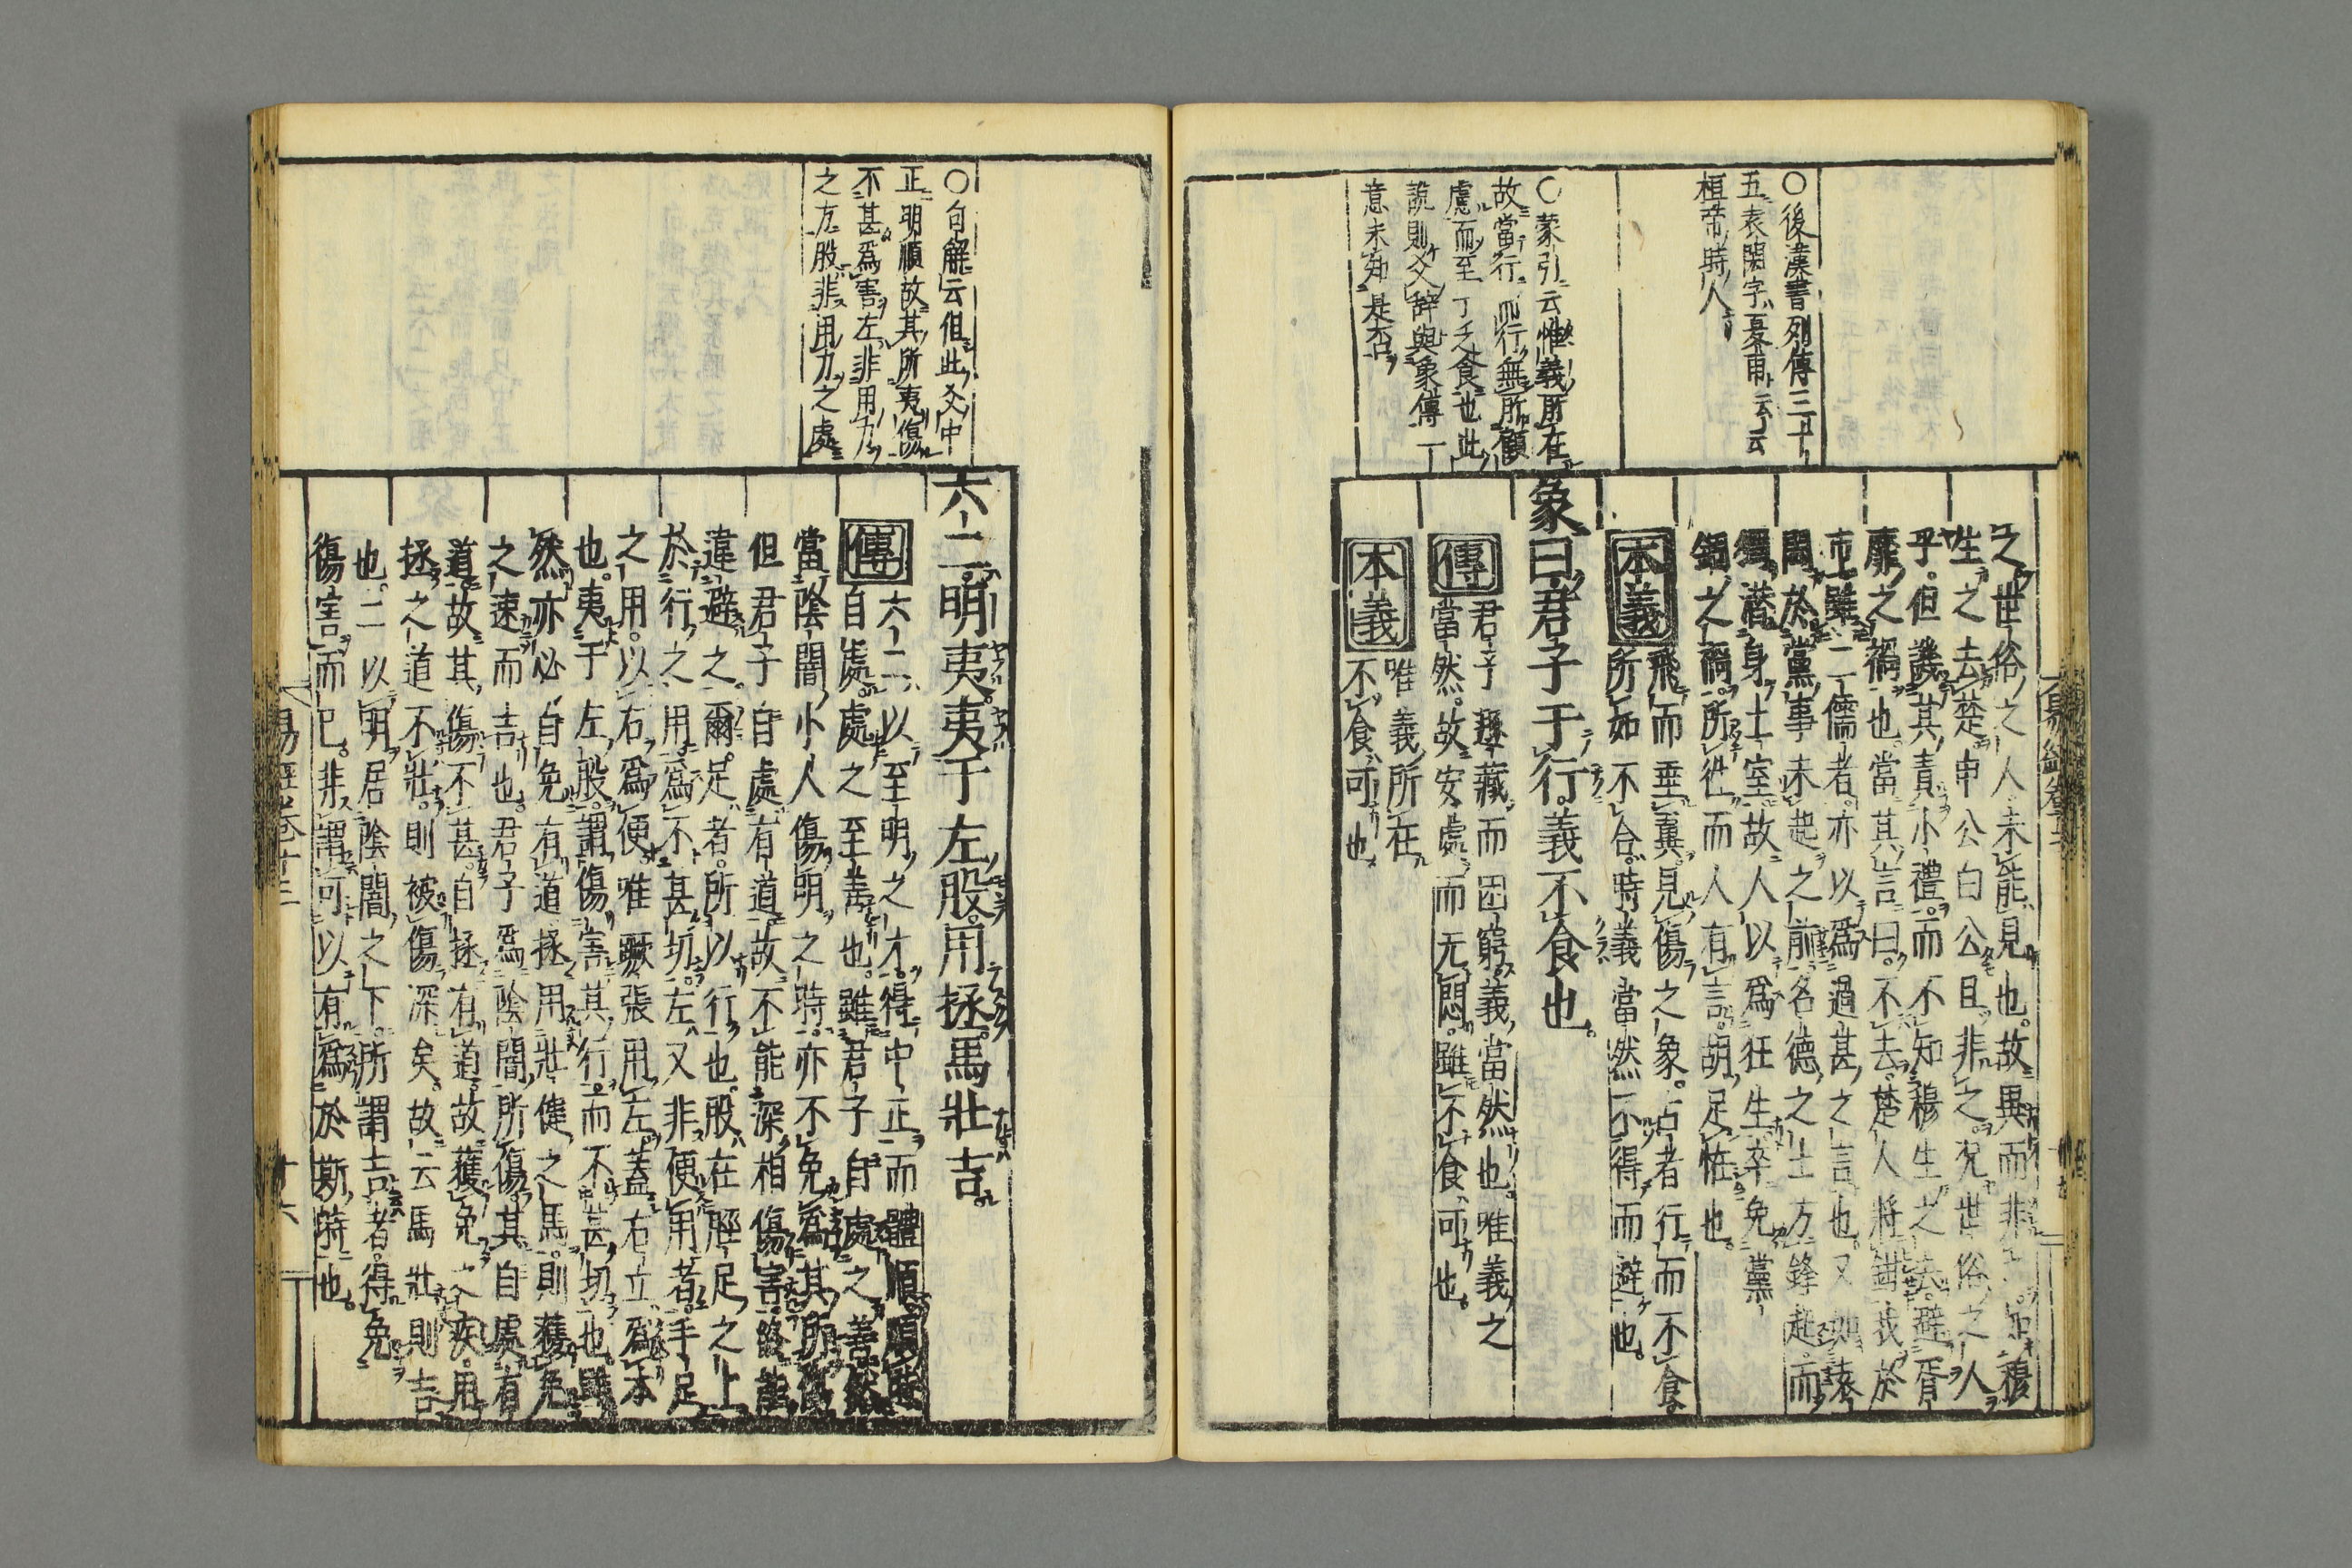 ○後漢書列傳三十
五袁閎字夏甫云云
桓帝時人
○蒙引云惟義所在
故當行而行無所顧
慮而至于乏食也此
說則爻辭與象傳一
意未知是否
之世俗之人未能見也故異而非
生之去楚申公白公且非之況世俗之人
乎但譏其責小禮而不知穆生之去避胥
靡之禍也當其言曰不去楚人將鉗我於
市雖二儒者亦以爲過甚之言也又如袁
閎於黨事未起之前名德之士方鋒起而
獨潛身土室故人以爲狂生卒免黨
錮之禍所往而人有言胡足怪也
本義 飛而垂翼見傷之象占者行而不食
所如不合時義當然不得而避也
象曰君子于行義不食也
傳 君子遯藏而困窮義當然也唯義之
當然故安處而无悶雖不食可也
本義 唯義所在
不食可也
○句解云但此爻中
正明順故其所夷傷
不甚爲害左非用力
之方股非用力之處
六二明夷夷于左股用拯馬壯吉
傳 六二以至明之才得中正而體順順時
自處處之至善也雖君子自處之善然
當陰闇小人傷明之時亦不免爲其所傷
但君子自處有道故不能深相傷害終能
違避之爾足者所以行也股在脛足之上
於行之用爲不甚切左又非便用者手足
之用以右爲便唯蹶張用左蓋右立爲本
也夷于左股謂傷害其行而不甚切也雖
然亦必自免有道拯用壯健之馬則獲免
之速而吉也君子爲陰闇所傷其自處有
道故其傷不甚自拯有道故獲免之疾用
拯之道不壯則被傷深矣故云馬壯則吉
也二以明居陰闇之下所謂吉者得免
傷害而已非謂可以有爲於斯時也
易經卷十三
十六